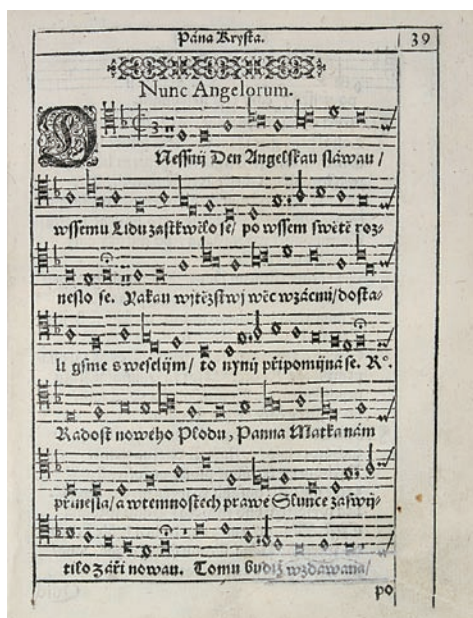 Pána Krysta. 39
Nunc Angelorum.
DNeſſnij Den Angelſkau ſláwau /
wſſemu Lidu zaſtkwělo ſe / po wſſem ſwětě roz⸗
neſlo ſe. Yakau wjtězſtwj wěc wzácnú / doſta⸗
li gſme s weſelijm / to nynij připomijná ſe. R°.
Radoſt noweho Plodu, Panna Matka nám
přineſla / a w temnoſtech prawé Slunce zaſwij⸗
tilo záři nowau. Tomu budiž wzdáwána /
po